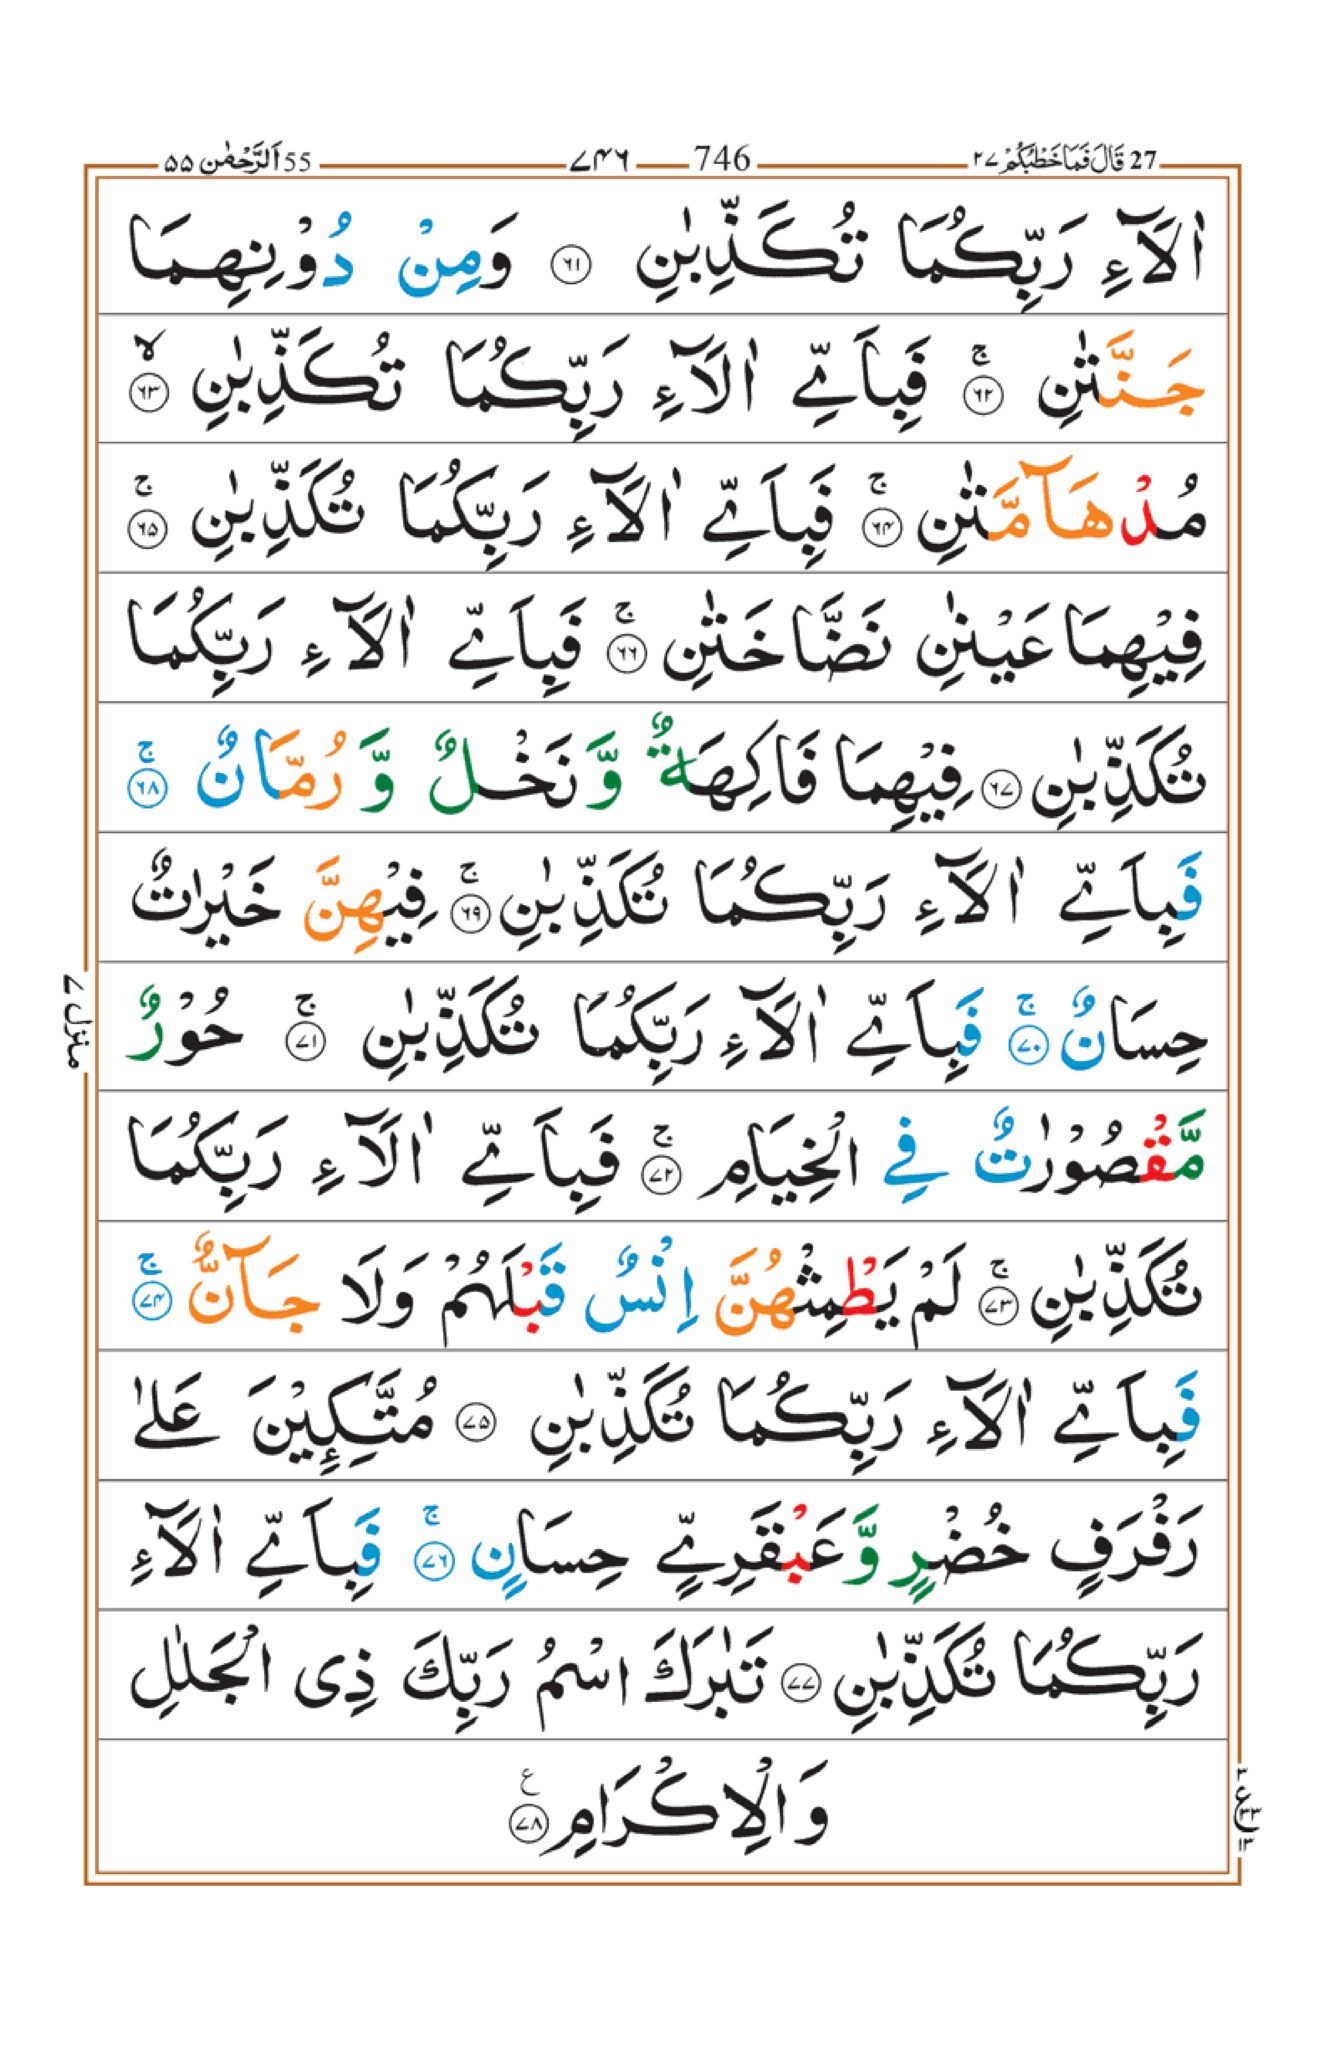 27 قَالَ فَمَا خَطْبُكُمْ ۲۷ 746 ۷۴۶ 55 اَلرَّحْمٰن ۵۵
اٰلَآءِ رَبِّكُمَا تُكَذِّبٰنِ ﴿۶۱﴾ وَمِنْ دُوْنِهِمَا
جَنَّتٰنِ ۚ ﴿۶۲﴾ فَبِاَيِّ اٰلَآءِ رَبِّكُمَا تُكَذِّبٰنِ ۙ ﴿۶۳﴾
مُدْهَآمَّتٰنِ ۚ ﴿۶۴﴾ فَبِاَيِّ اٰلَآءِ رَبِّكُمَا تُكَذِّبٰنِ ۚ ﴿۶۵﴾
فِيْهِمَا عَيْنٰنِ نَضَّاخَتٰنِ ۚ ﴿۶۶﴾ فَبِاَيِّ اٰلَآءِ رَبِّكُمَا
تُكَذِّبٰنِ ﴿۶۷﴾ فِيْهِمَا فَاكِهَةٌ وَّنَخْلٌ وَّرُمَّانٌ ۚ ﴿۶۸﴾
فَبِاَيِّ اٰلَآءِ رَبِّكُمَا تُكَذِّبٰنِ ۚ ﴿۶۹﴾ فِيْهِنَّ خَيْرٰتٌ
حِسَانٌ ۚ ﴿۷۰﴾ فَبِاَيِّ اٰلَآءِ رَبِّكُمَا تُكَذِّبٰنِ ۚ ﴿۷۱﴾ حُوْرٌ
مَّقْصُوْرٰتٌ فِي الْخِيَامِ ۚ ﴿۷۲﴾ فَبِاَيِّ اٰلَآءِ رَبِّكُمَا
تُكَذِّبٰنِ ۚ ﴿۷۳﴾ لَمْ يَطْمِثْهُنَّ اِنْسٌ قَبْلَهُمْ وَلَا جَآنٌّ ۚ ﴿۷۴﴾
فَبِاَيِّ اٰلَآءِ رَبِّكُمَا تُكَذِّبٰنِ ﴿۷۵﴾ مُتَّكِـِٕيْنَ عَلٰى
رَفْرَفٍ خُضْرٍ وَّعَبْقَرِيٍّ حِسَانٍ ۚ ﴿۷۶﴾ فَبِاَيِّ اٰلَآءِ
رَبِّكُمَا تُكَذِّبٰنِ ﴿۷۷﴾ تَبٰرَكَ اسْمُ رَبِّكَ ذِى الْجَلٰلِ
وَالْاِكْرَامِ ﴿۷۸﴾ ع
منزل ۷